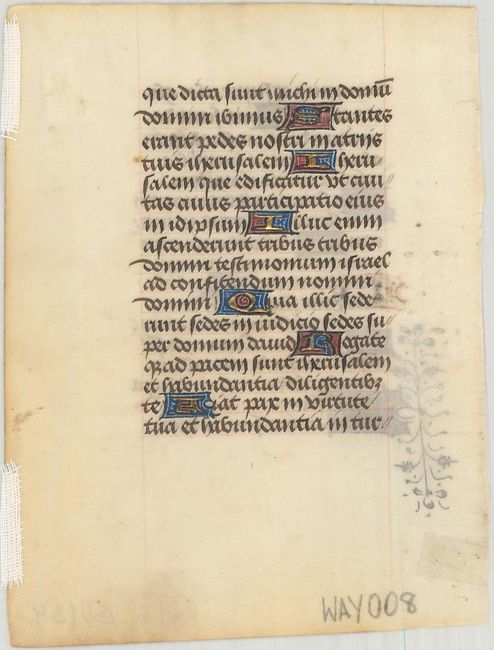 que dicta sunt michi in domū
domini ibimus Stantes
erant pedes nostri in atriis
tuis iherusalem Iheru
salem que edificatur vt ciui
tas cuius participatio eius
in idipsum Illuc enim
ascenderunt tribus tribus
domini testimonium israel
ad confitendum nomini
domini Quia illic sede
runt sedes in iudicio sedes su
per domum dauid Rogate
que ad pacem sunt iherusalem
et habundantia diligentibz
te Fiat pax in virtute
tua et habundantia in tur
WAY008